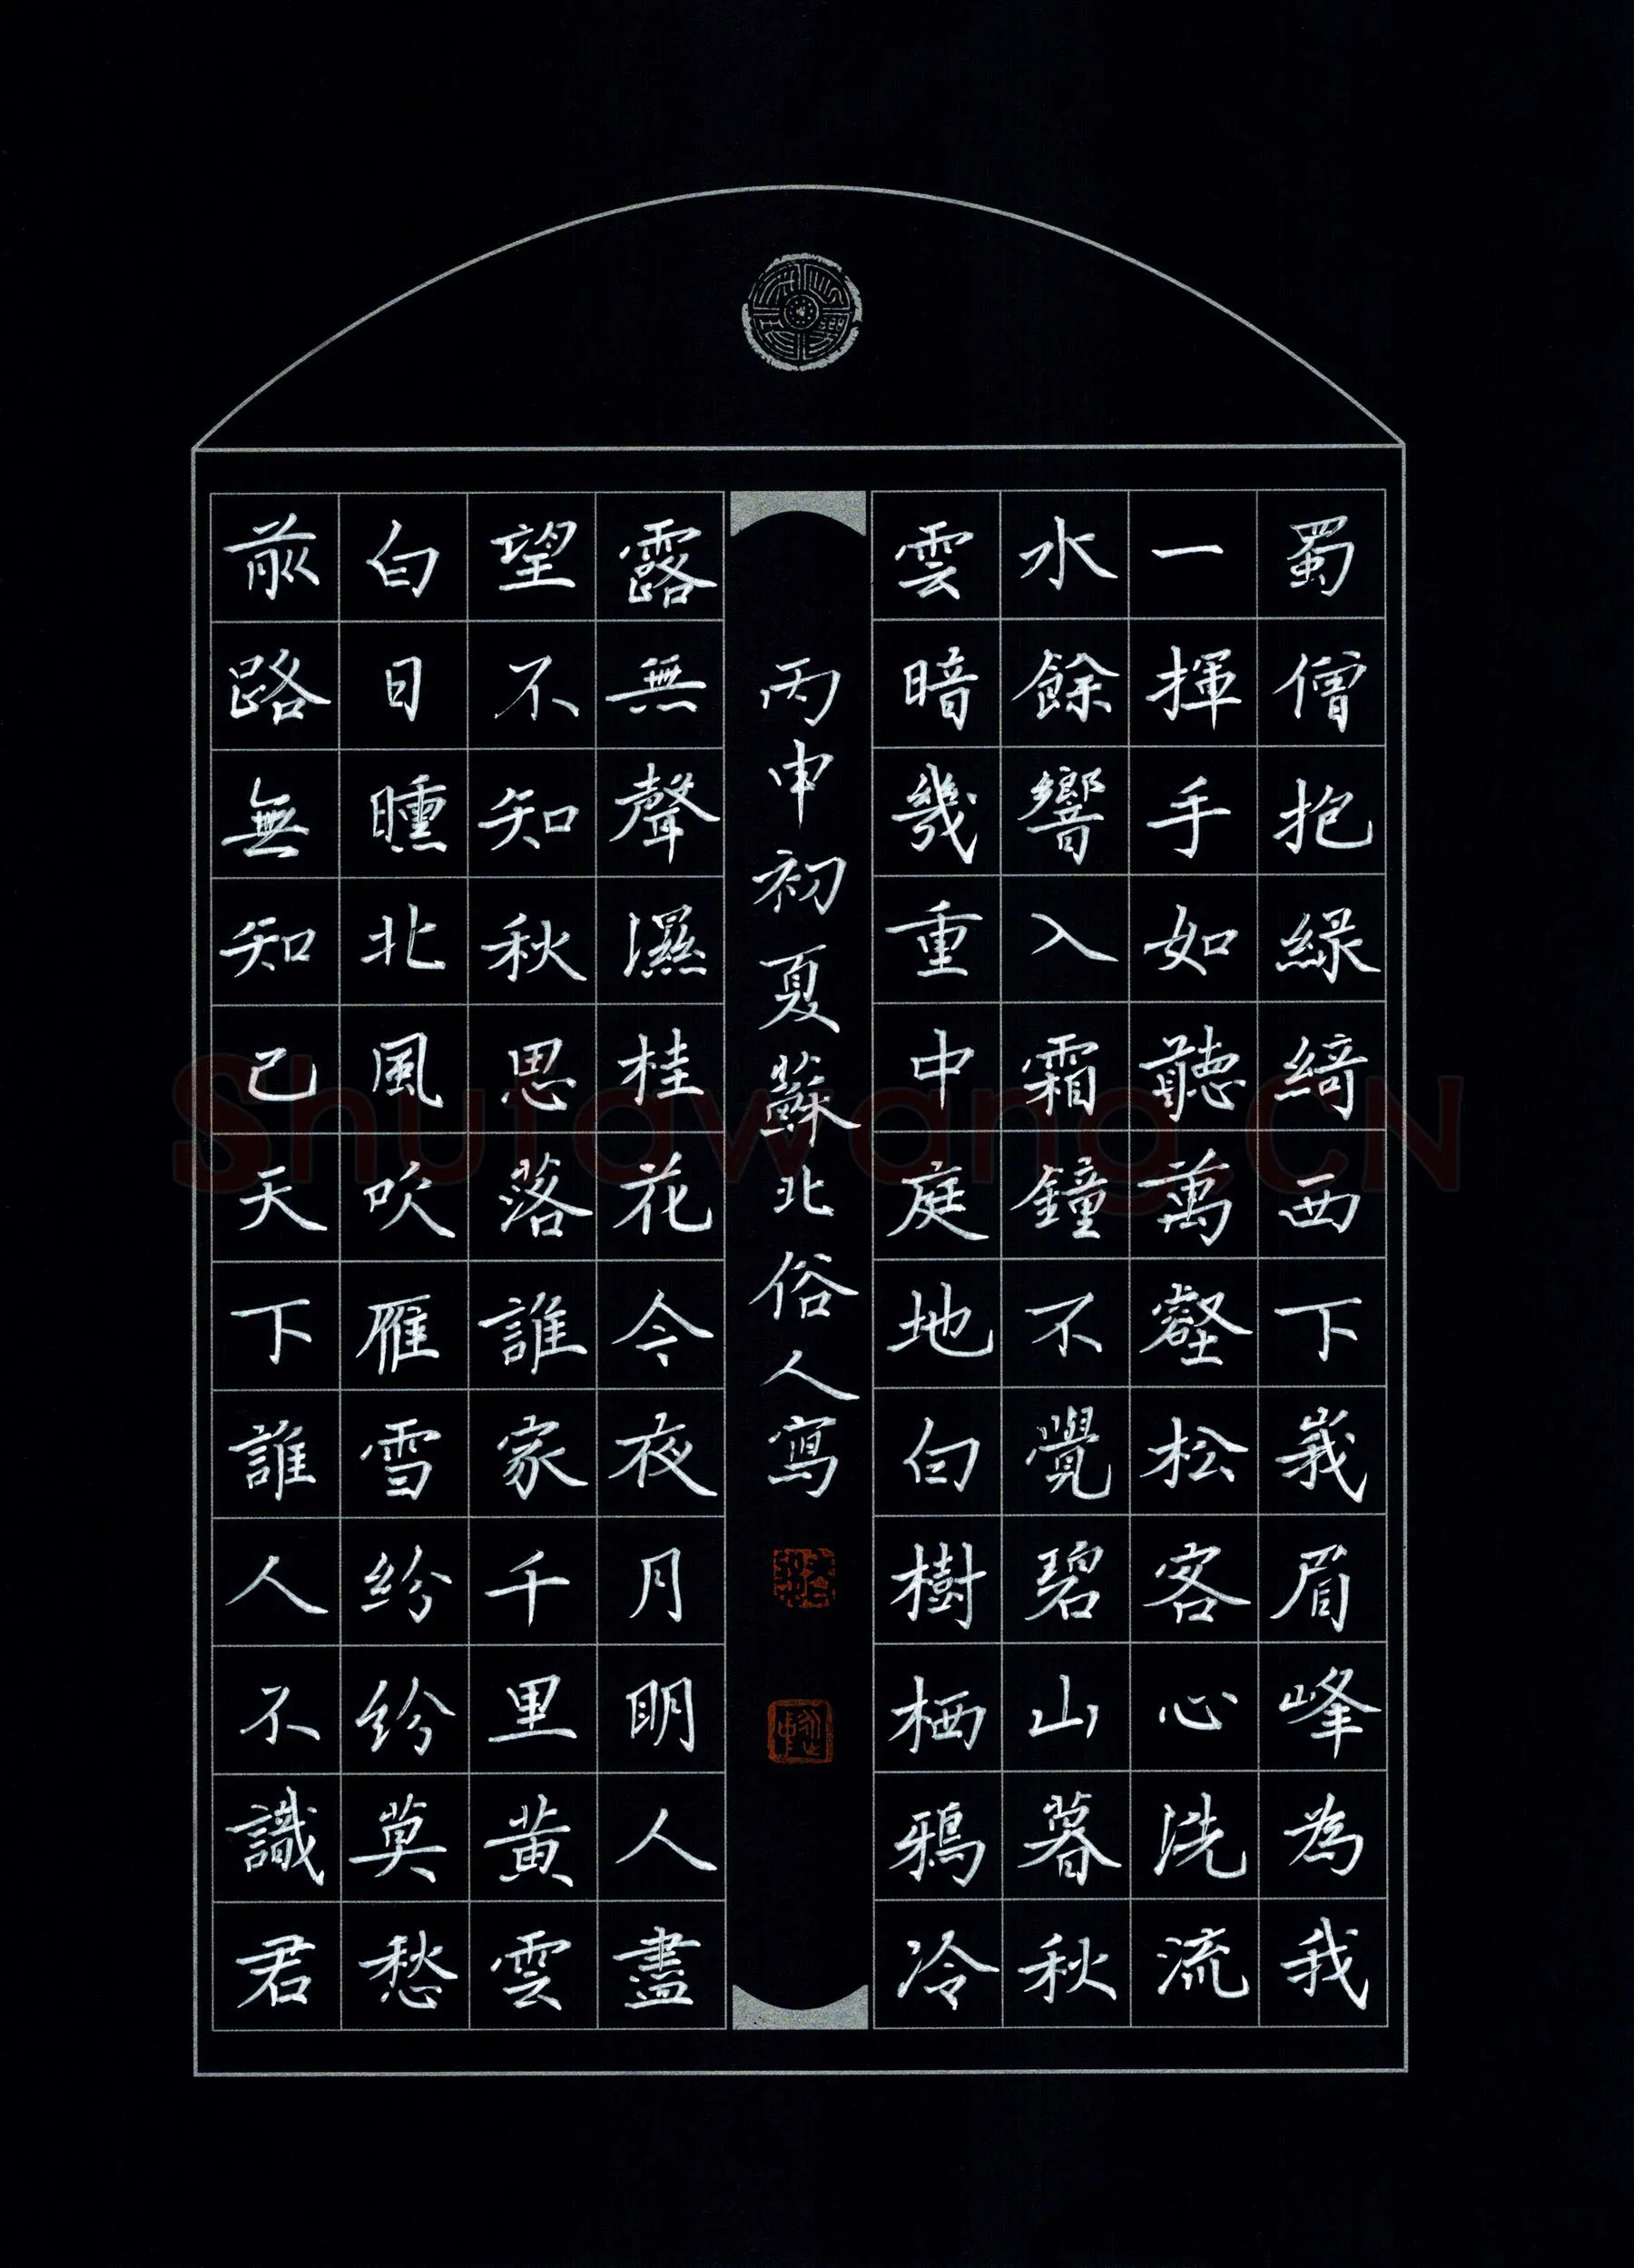 蜀僧抱緑綺西下峩眉峰為我
一揮手如聽萬壑松客心洗流
水餘響入霜鐘不覺碧山暮秋
雲暗幾重中庭地白樹栖鴉冷
丙申初夏蘇北俗人寫
露無聲濕桂花今夜月明人盡
望不知秋思落誰家千里黄雲
白日曛北風吹雁雪紛紛莫愁
前路無知己天下誰人不識君
Shufawang.CN